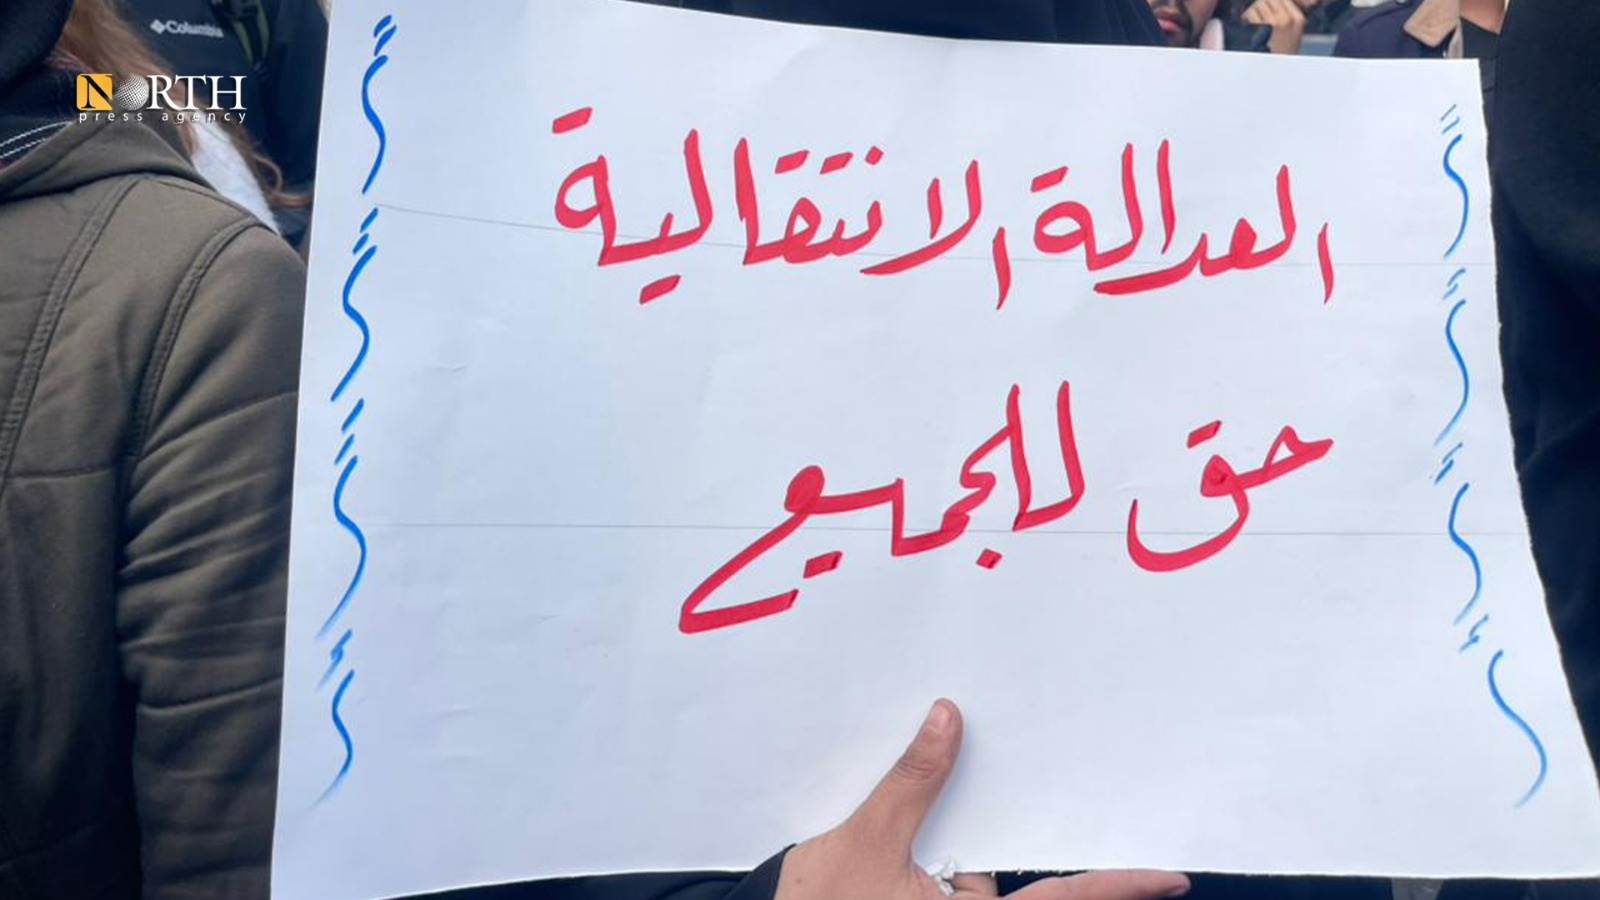 Columbia
NORTH
press agency
العدالة الانتقالية
حق للجميع